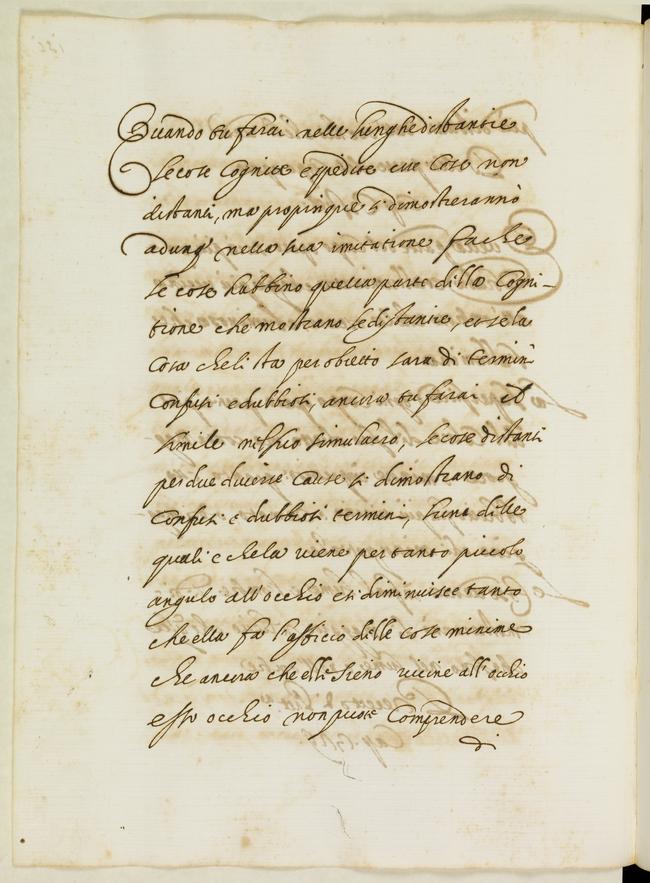 Quando tu farai nelle lunghe distantie
le cose cognite espedite, esse cose non
distanti, ma propinque si dimostreranno
adunq' nella tua imitatione fa che
le cose habbino quella parte della cogni-
tione che mostrano le distantie, et se la
cosa che ti sta per obietto sara di termini
confusi e dubbiosi, ancora tu farai il
simile nel tuo simulacro, le cose distanti
per due diverse cause si dimostrano di
confusi e dubbiosi termini, l'una delle
quali è ch'ella viene per tanto piccolo
angulo all'occhio e si diminuisce tanto
che ella fa l'officio delle cose minime
che ancora che elle sieno vicine all'occhio
esso occhio non puote comprendere
di